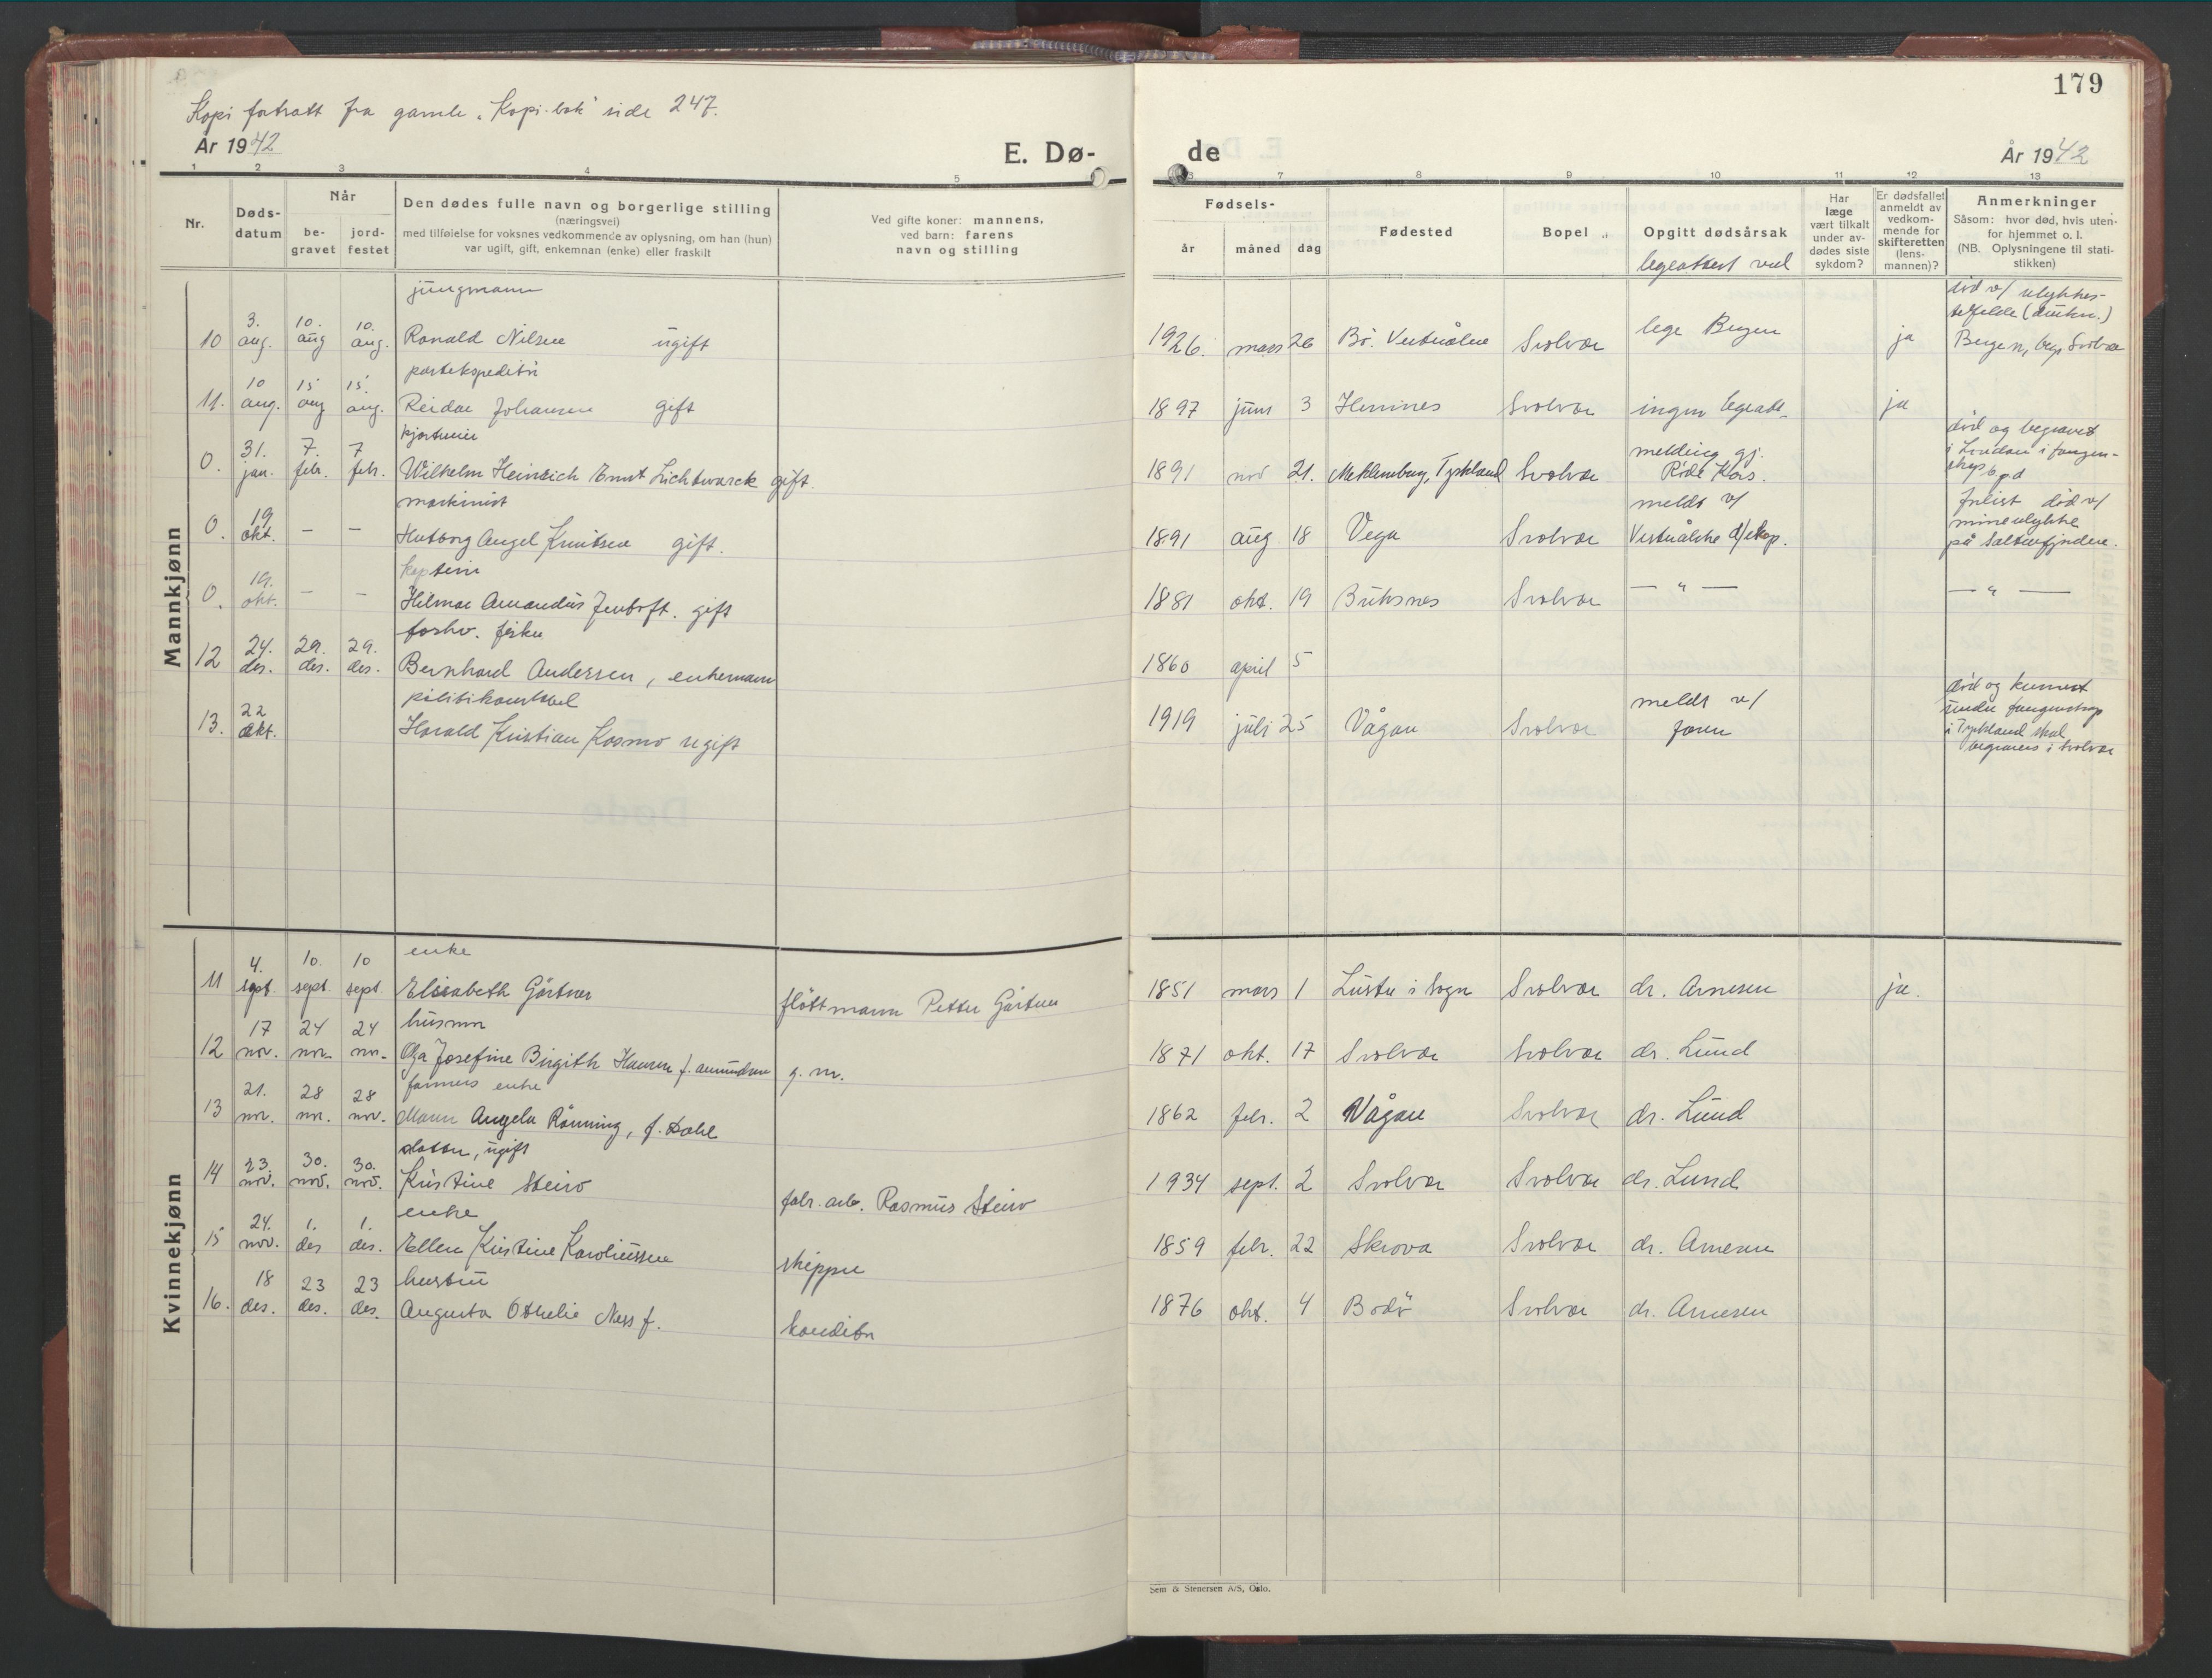 Kopi fortsatt fra gamle "Kopi-bok" side 247.
År 1942
E. Dø-
1 2 3 4 5
Nr.
Døds-
datum
Når
be-
gravet
jord-
festet
Den dødes fulle navn og borgerlige stilling
(næringsvei)
med tilføielse for voksnes vedkommende av oplysning, om han (hun)
var ugift, gift, enkemnan (enke) eller fraskilt
Ved gifte koner: mannens,
ved barn: farens
navn og stilling
Mannkjønn
jungmann
10 3. aug. 10. aug 10. aug. Ronald Nilsen ugift
postekspeditør
11. 10 aug. 15 aug 15. aug. Reidar Johansen gift
kjørtner
0. 31. jan. 7. febr. 7 febr. Wilhelm Heinrich Ernst Lichtwarck gift.
maskinist
0. 19 okt. — — Hutborg Angel Knutsen gift.
kaptein
0. 19. okt. — — Hilmar Amandus Jentoft. gift
forhv. fisker
12 24. des. 29. des. 29. des. Bernhard Andersen, enkemann
politikonstabel
13. 22 okt. Harald Kristian Kosmo ugift
Kvinnekjønn
enke
11 4. sept. 10. sept. 10 sept. Elisabeth Gärtner fløttmann Petter Gärtner
husmor
12 17 nov. 24 nov. 24 nov. Olga Josefine Birgith Hansen f. amundsen g. m.
farmers enke
13 21. nov. 28 nov. 28 nov. Maren Angela Rönning, f. Dahl
datter, ugift
14 23. nov. 30. nov. 30. nov. Kristine Steiro fabr. arb. Rasmus Steiro
enke
15 24. nov. 1. des 1. des. Ellen Kristine Karoliussen skipper
hustru
16. 18 des. 23 des. 23 des. Augusta Othelie Ness f. konditor
179
de
År 1942
6 7 8 9 10 11 12 13
Fødsels-
år måned dag
Fødested
Bopel
Opgitt dødsårsak
legeattest ved
Har
læge
vært tilkalt
under av-
dødes siste
sykdom?
Er dødsfallet
anmeldt av
vedkom-
mende for
skifteretten
(lens-
mannen)?
Anmerkninger
Såsom: hvor død, hvis uten-
for hjemmet o. l.
(NB. Oplysningene til stati-
stikken)
1926. mars 26 Bø. Vesterålen Svolvær lege Bergen ja død v/ ulykkes-
tilfelle (drukn.)
Bergen, begr. Svolvær
1897 juni 3 Hemnes Svolvær ingen legeatt. ja
1891 nov 21. Meklemburg, Tyskland Svolvær melding gj.
Röde Kors.
død og begravet
i London i fangen-
skap
1891 aug 18 Vega Svolvær meldt v/
Vesterålske d/skap.
forlist død v/
mineulykke
på Saltenfjorden.
1881 okt. 19 Buksnes Svolvær — " — — " —
1860 april 5
1919 juli 25 Vågan Svolvær meldt v/
faren
død og kremert
under fangenskap
i Tyskland skal
begraves i Svolvær
1851 mars 1 Luster i Sogn Svolvær dr. Arnesen ja.
1871 okt. 17 Svolvær Svolvær dr. Lund
1862 febr. 2 Vågan Svolvær dr. Lund
1934 sept. 2 Svolvær Svolvær dr. Lund
1859 febr. 22 Skrova Svolvær dr. Arnesen
1876 okt. 4 Bodö Svolvær dr. Arnesen
Sem & Stenersen A/S, Oslo.